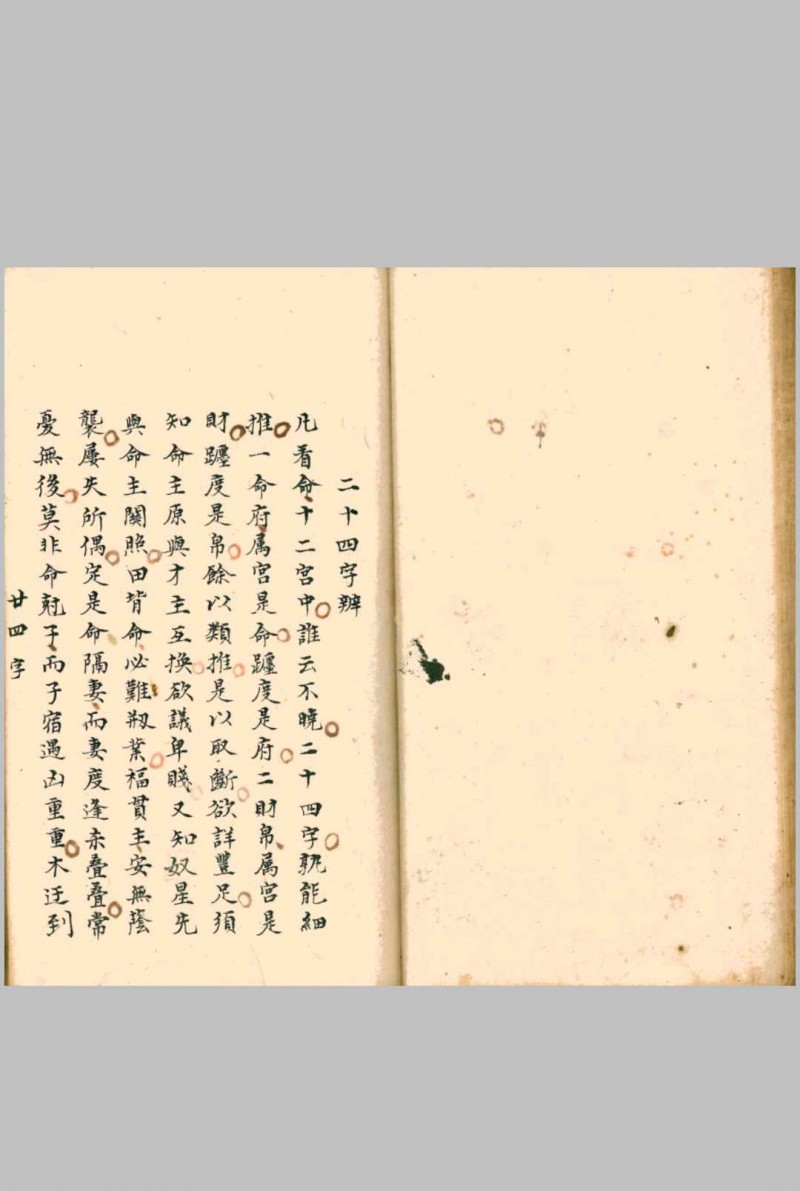 二十四字辨
凡看命十二宮中誰云不曉二十四字孰能細
推一命府属宮是命躔度是府二財帛属宮是
財躔度是帛餘以類推是以取斷欲詳豐足須
知命主原與才主互換欲議卑賤又知奴星先
與命主關照田背命必難刱業福貫主安無蔭
襲屡失所偶定是命隔妻而妻度逢夲叠叠常
憂無後莫非命尅子而子宿遇凶重重木迁到
廿四字